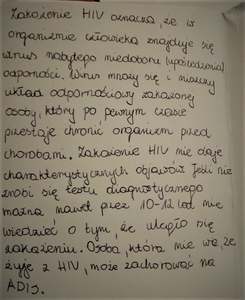 Zakażenie HIV oznacza, że w
organizmie człowieka znajduje się
wirus nabytego niedoboru (upośledzenia)
odporności. Wirus mnoży się i niszczy
układ odpornościowy zakażonej
osoby, który po pewnym czasie
przestaje chronić organizm przed
chorobami. Zakażenie HIV nie daje
charakterystycznych objawów. Jeśli nie
zrobi się testu diagnostycznego
można nawet przez 10-12 lat nie
wiedzieć o tym, że uległo się
zakażeniu. Osoba, która nie wie, że
żyje z HIV, może zachorować na
AIDS.